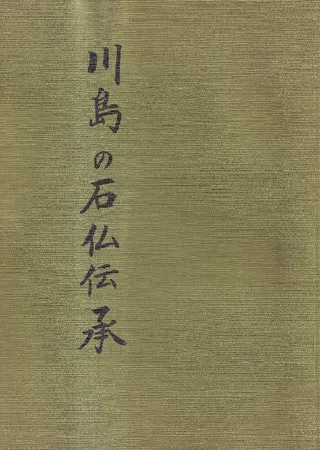 川島の石仏伝承